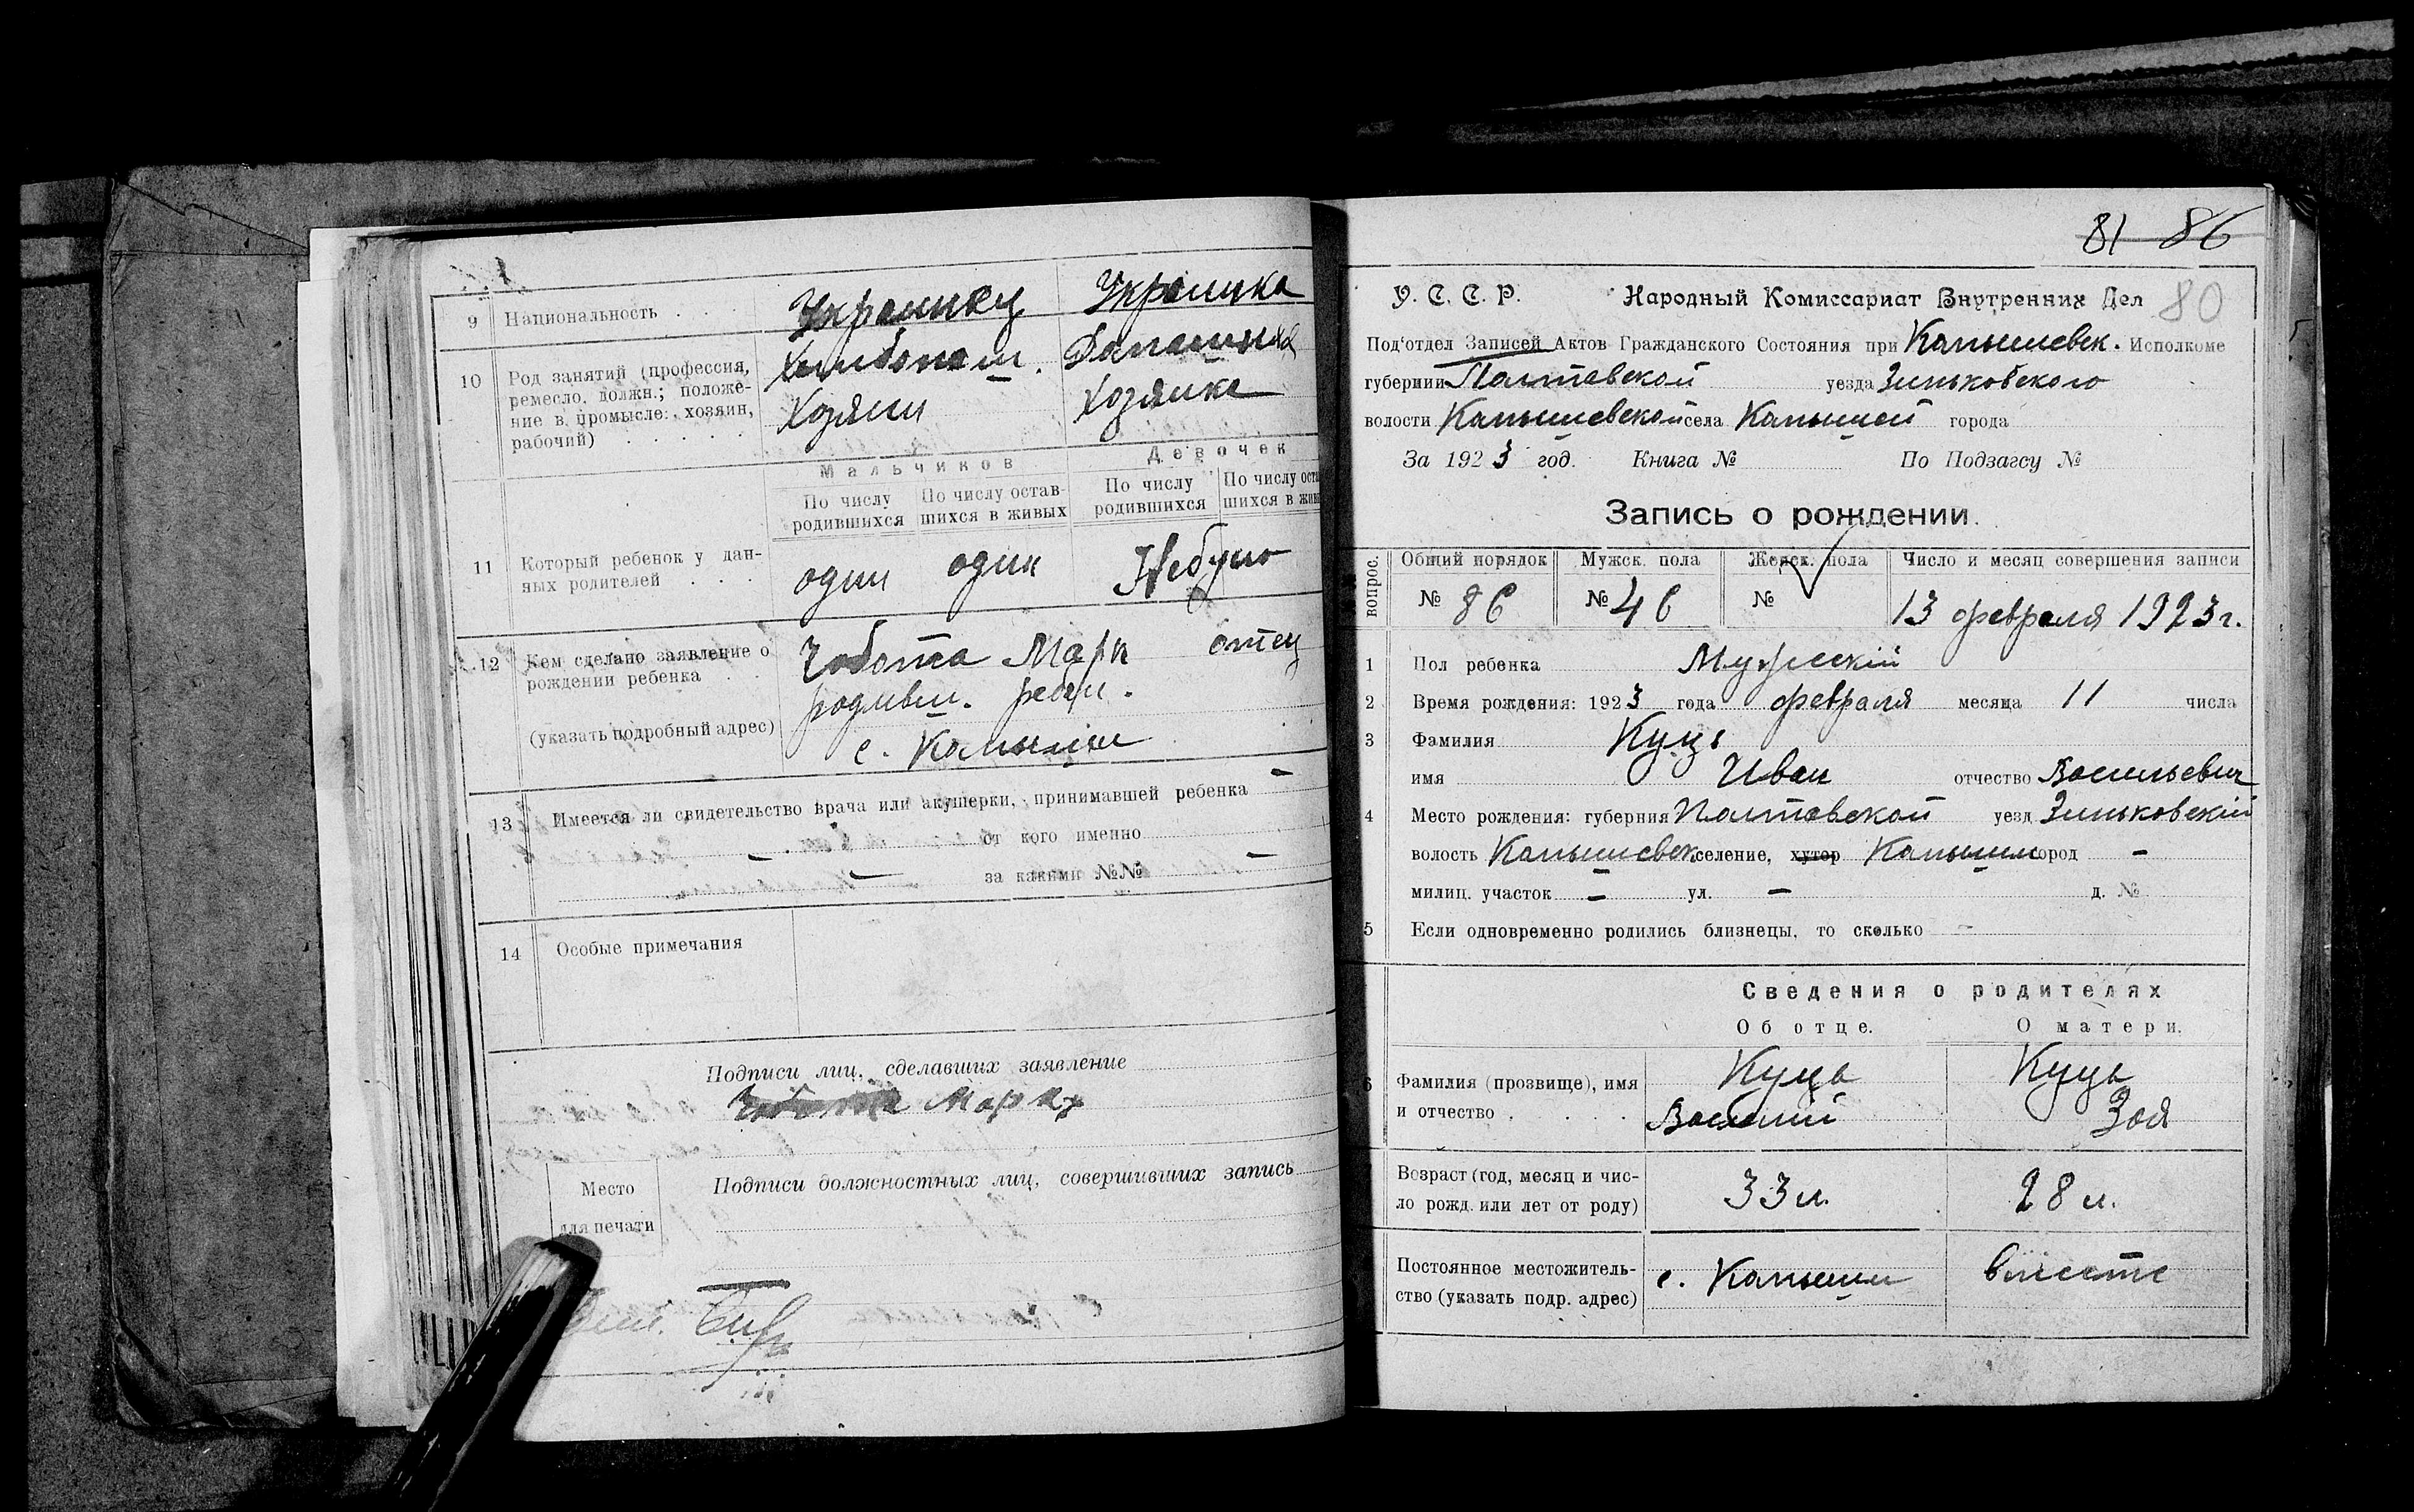 9 Национальность . . . Украинец Украинка
10 Род занятий (профессия, Хлибопаш. Домашняя
ремесло, должн.; положе-
ние в промысле: хозяин, Хозяин Хозяйка
рабочий) . . . . . .
Мальчиков Девочек
По числу По числу остав- По числу
родившихся шихся в живых родившихся шихся в
11 Который ребенок у дан- один один Небуло
ных родителей . . .
12 Кем сделано заявление о Чобота Марк отец
рождении ребенка . .
родивш. ребен.
(указать подробный адрес)
с. Камыши
13 Имеется ли свидетельство врача или акушерки, принимавшей ребенка —
— от кого именно
— за какими №№ —
14 Особые примечания
Подписи лиц, сделавших заявление
Марк
Место Подписи должностных лиц, совершивших запись
для печати
81 86
У. С. С. Р. Народный Комиссариат Внутренних Дел 80
Под‘отдел Записей Актов Гражданского Состояния при Камышевск. Исполкоме
губернии Полтавской уезда Зиньковского
волости Камышевской села Камышей города
За 1923 год. Книга № По Подзагсу №
Запись о рождении.
вопрос. Общий порядок Мужск. пола Женск. пола Число и месяц совершения записи
№ 86 № 46 № 13 февраля 1923 г.
1 Пол ребенка Мужескій
2 Время рождения: 1923 года февраля месяца 11 числа
3 Фамилия Куць
имя Иван отчество Васильевич
4 Место рождения: губерния Полтавской уезд Зиньковскій
волость Камышевск селение, хутор Камыши город —
милиц. участок — ул. — д. №
5 Если одновременно родились близнецы, то сколько —
Сведения о родителях
Об отце. О матери.
6 Фамилия (прозвище), имя Куць Куць
и отчество . . . Василий Зоя
Возраст (год, месяц и чис- 33 л. 28 л.
ло рожд. или лет от роду)
Постоянное местожитель- с. Камыши вместе
ство (указать подр. адрес)